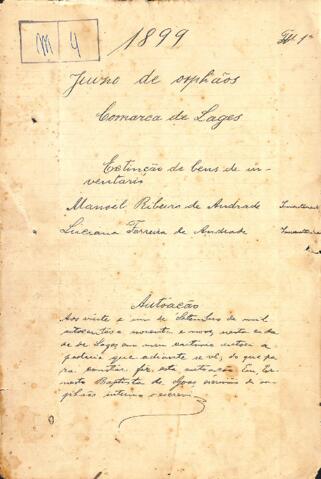 M 4
1899
Fl. 1ª
Juizo de orphãos
Comarca de Lages
Extinção de bens de in-
ventario
Manoel Ribeiro de Andrade
Luciana Ferreira de Andrade
Autoação
Aos vinte e um de Setembro de mil
oitocentos e noventa e nove, nesta cida
de de Lages, em meu cartorio autoei a
que adiante se vê, do que pa
ra constar fiz esta autoação Eu, Er
nesto Baptista de Goes, escrivão de or
phãos interino escrevi